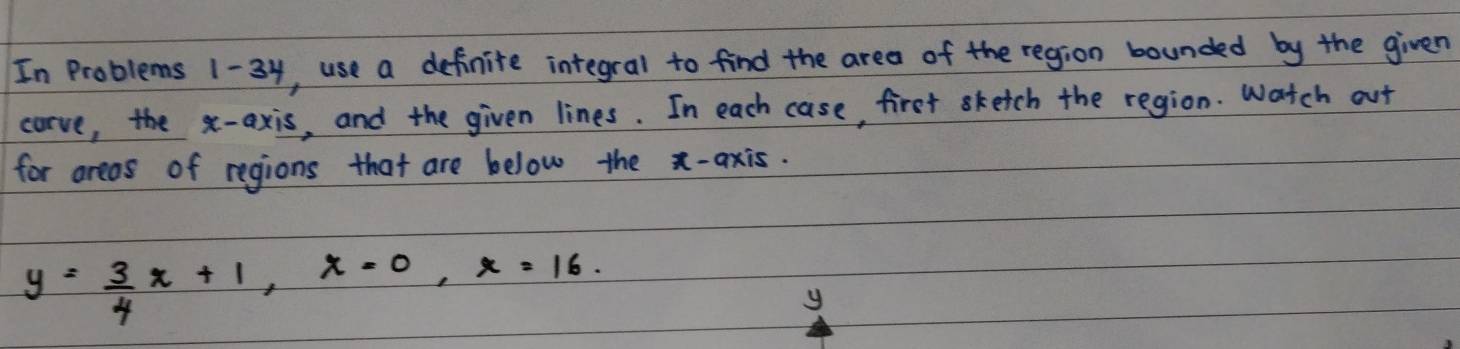 In Problems 1-34, use a definite integral to find the area of the region bounded by the given
curve, the x-axis, and the given lines. In each case, first sketch the region. Watch out
for areas of regions that are below the x-axis.
y = 3/4 x + 1, x = 0, x = 16.
y